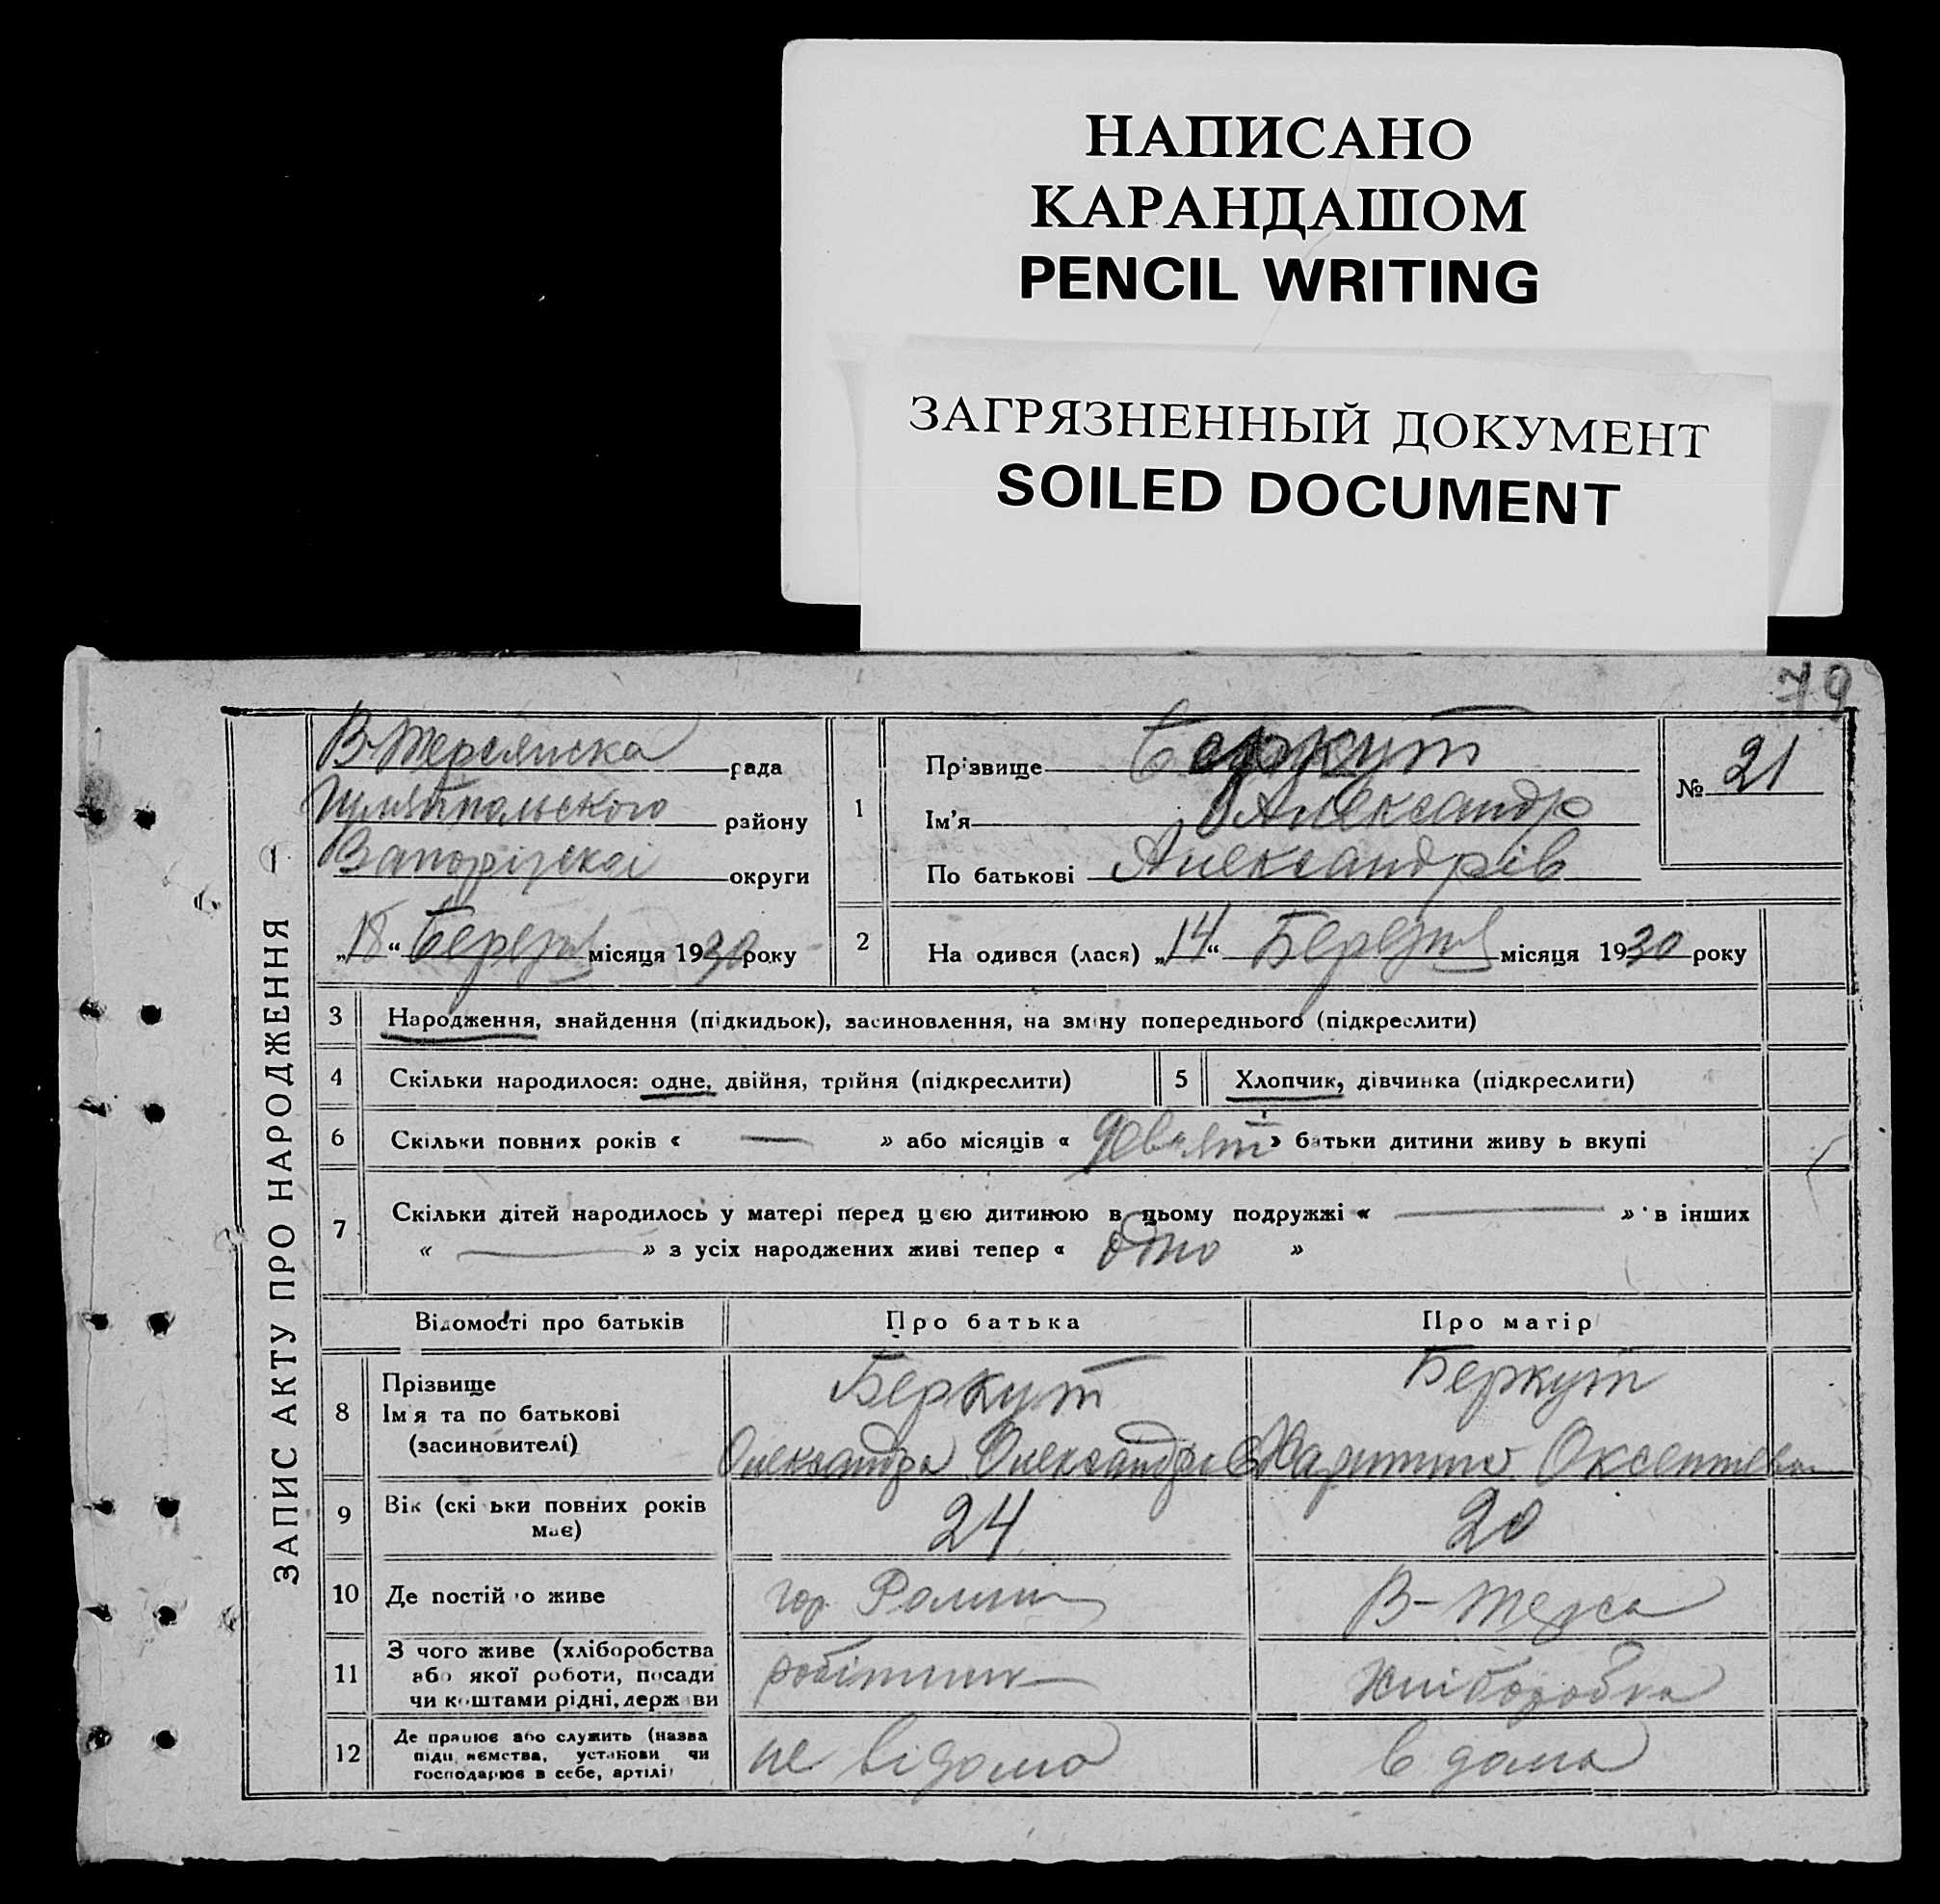 НАПИСАНО
КАРАНДАШОМ
PENCIL WRITING
ЗАГРЯЗНЕННЫЙ ДОКУМЕНТ
SOILED DOCUMENT
79
ЗАПИС АКТУ ПРО НАРОДЖЕННЯ
В-Терсянска рада
району
Запоріжскої округи
„18“ Березня місяця 1930 року
1
Прізвище Беркут
Ім'я Александр
По батькові Александрів
№ 21
2 На одився (лася) „14“ Березня місяця 1930 року
3 Народження, знайдення (підкидьок), засиновлення, на зміну попереднього (підкреслити)
4 Скільки народилося: одне, двійня, трійня (підкреслити)
5 Хлопчик, дівчинка (підкреслити)
6 Скільки повних років « — » або місяців « девять » батьки дитини живу ь вкупі
7 Скільки дітей народилось у матері перед цією дитиною в цьому подружжі « — » в інших
« — » з усіх народжених живі тепер « одно »
Відомості про батьків Про батька Про матір
8 Прізвище
Імя та по батькові
(засиновителі)
Беркут
Олександра Олександрів
Беркут
Оксентієва
9 Вік (скі ьки повних років
має)
24
20
10 Де постій о живе
гор.
В-Терса
11 З чого живе (хліборобства
або якої роботи, посади
чи коштами рідні, держави
робітник
Хліборобка
12 Де працює або служить (назва
підп ємства, установи чи
господарює в себе, артілі
не відомо
в дома